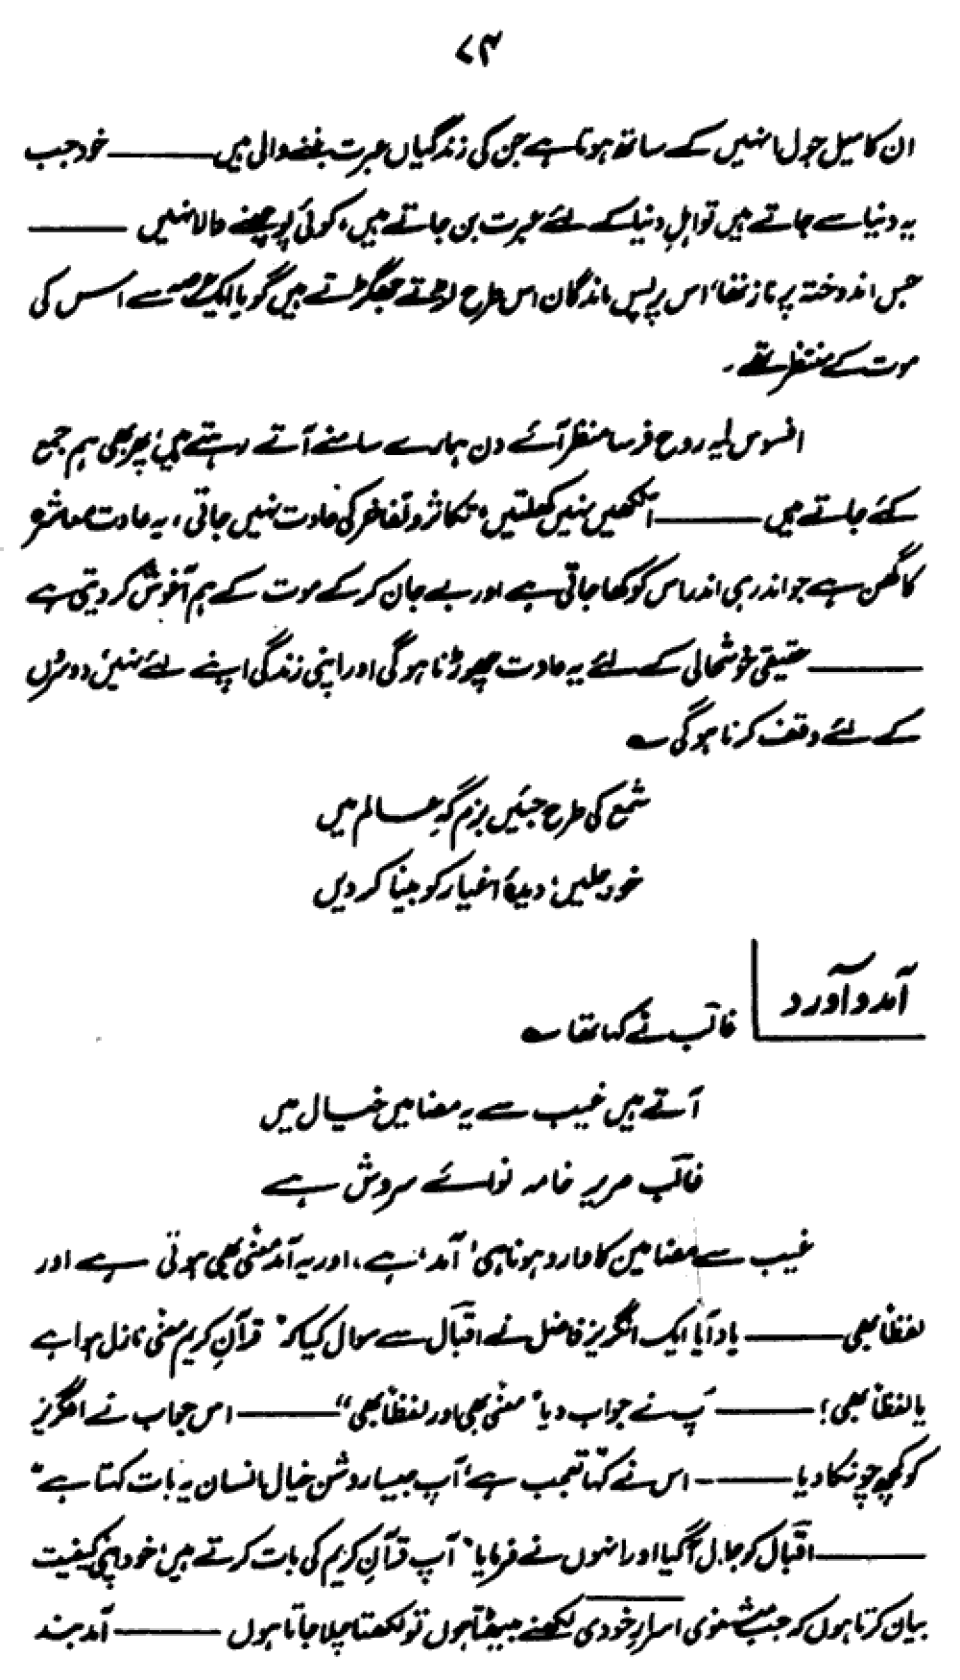 ۷۴
ان کا میل جول انہیں کے ساتھ ہوتا ہے جن کی زندگیاں عبرت بننے والی ہیں ——— خود جب
یہ دنیا سے جاتے ہیں تو اہلِ دنیا کے لئے عبرت بن جاتے ہیں، کوئی پوچھنے والا نہیں ———
جس اندوختہ پر ناز تھا، اس پر پس ماندگان اس طرح لڑتے جھگڑتے ہیں گویا ایک عرصہ سے اس کی
موت کے منتظر تھے۔
افسوس یہ روح فرسا منظر آئے دن ہمارے سامنے آتے رہتے ہیں، پھر بھی ہم جمع
کئے جاتے ہیں ——— آنکھیں نہیں کھلتیں، تکاثر و تفاخر کی عادت نہیں جاتی، یہ عادت معاشرہ
کا گھن ہے جو اندر ہی اندر اس کو کھا جاتی ہے اور بے جان کر کے موت کے ہم آغوش کر دیتی ہے
——— حقیقی خوشحالی کے لئے یہ عادت چھوڑنا ہوگی اور اپنی زندگی اپنے لئے نہیں، دوسروں
کے لئے وقف کرنا ہوگی ؎
شمع کی طرح جئیں بزم گہِ عالم میں
خود جلیں، دیدۂ اغیار کو بینا کر دیں
آمد و آورد
غالب نے کہا تھا ؎
آتے ہیں غیب سے یہ مضامیں خیال میں
غالب صریر خامہ نوائے سروش ہے
غیب سے مضامین کا وارد ہونا ہی ’آمد‘ ہے، اور یہ آمد معنیً بھی ہوتی ہے اور
لفظاً بھی ——— یاد آیا ایک انگریز فاضل نے اقبال سے سوال کیا کہ ”قرآن کریم معنیً نازل ہوا ہے
یا لفظاً بھی؟ ——— آپ نے جواب دیا ”معنیً بھی اور لفظاً بھی“ ——— اس جواب نے انگریز
کو کچھ چونکا دیا ——— اس نے کہا ”تعجب ہے، آپ جیسا روشن خیال انسان یہ بات کہتا ہے“
——— اقبال کو جلال آگیا اور انہوں نے فرمایا ”آپ قرآن کریم کی بات کرتے ہیں، خود اپنی کیفیت
بیان کرتا ہوں کہ جب مثنوی اسرارِ خودی لکھنے بیٹھتا ہوں تو لکھتا چلا جاتا ہوں ——— آمد بند